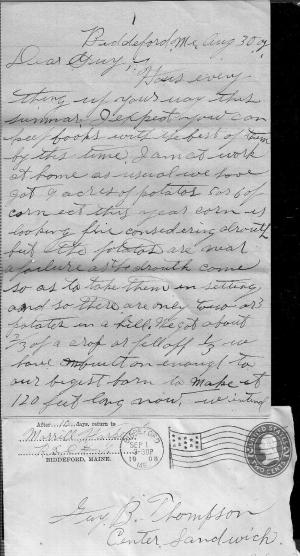 Biddeford, Me, Aug 30, 0
Dear Guy;
Hows every
thing up your way this
summar, I expect you can
by this time, I am at work
at home as usual we have
got 9 acres of potatos 5 or 6 of
corn ect this year corn is
looking fine considering drouth
but the potatos are near
a failure as the drouth come
so as to take them in setting
and so there are only two or 3
potatos in a hill. We got about
2/3 of a crop or fell off 1/3 we
have built on enough to
our bigest barn to make it
120 feet long now, we intend
After 10 days, return to
Merrill
BIDDEFORD, MAINE.
BIDDEFORD
SEP 1
3-30P
1908
ME.
UNITED STATES
TWO CENTS
Guy B. Thompson
Center Sandwich.